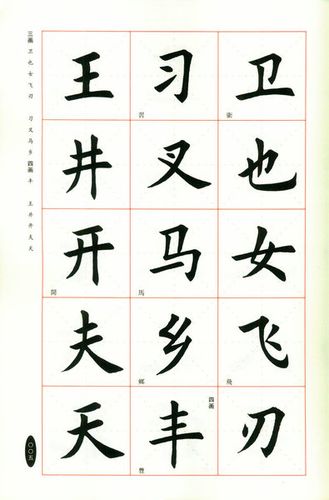 卫
衛
也
女
飞
飛
刃
习
習
叉
马
馬
乡
鄉
四画
丰
豐
王
井
开
開
夫
天
三画 卫 也 女 飞 刃 习 叉 马 乡 四画 丰 王 井 开 夫 天
〇〇五